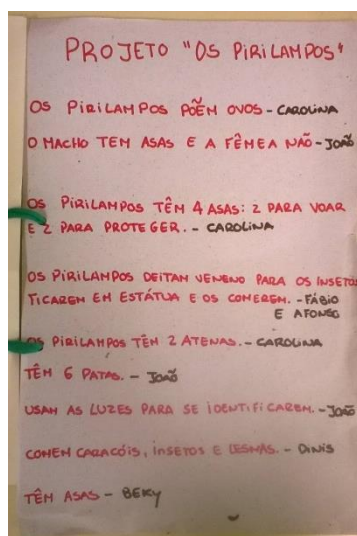 PROJETO "OS PIRILAMPOS"
OS PIRILAMPOS PÕEM OVOS - CAROLINA
O MACHO TEM ASAS E A FÊMEA NÃO - JOÃO
OS PIRILAMPOS TÊM 4 ASAS: 2 PARA VOAR
E 2 PARA PROTEGER. - CAROLINA
OS PIRILAMPOS DEITAM VENENO PARA OS INSETOS
FICAREM EM ESTÁTUA E OS COMEREM. - FÁBIO
E AFONSO
OS PIRILAMPOS TÊM 2 ATENAS. - CAROLINA
TÊM 6 PATAS. - JOÃO
USAM AS LUZES PARA SE IDENTIFICAREM. - JOÃO
COMEM CARACÓIS, INSETOS E LESMAS. - DINIS
TÊM ASAS - BEKY